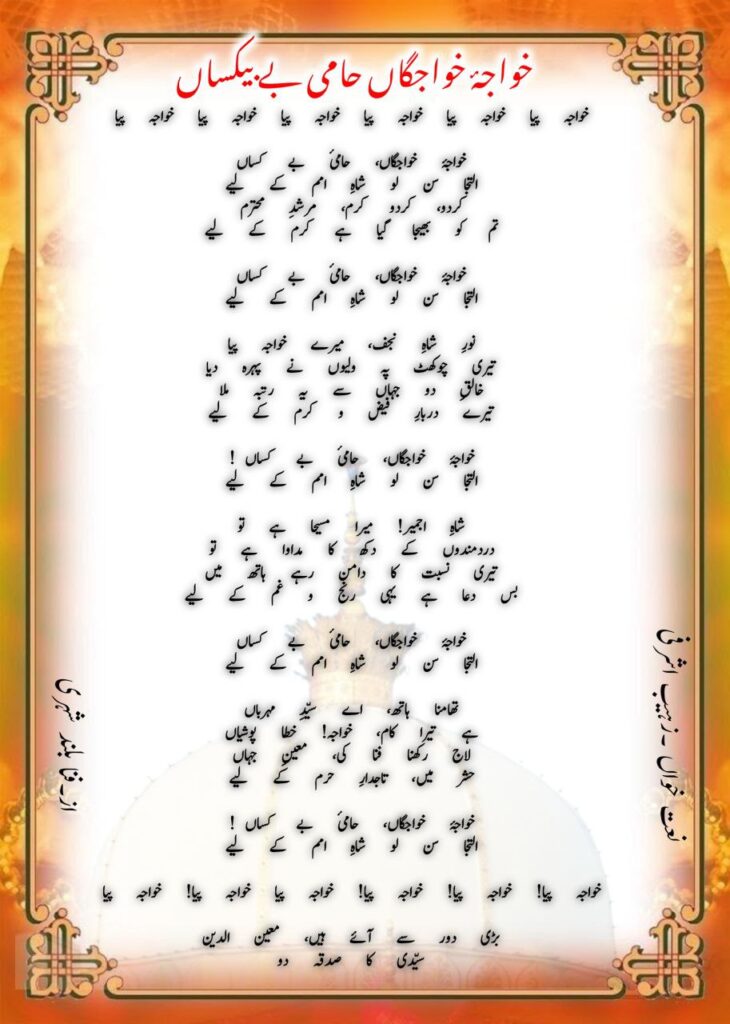 خواجۂ خواجگاں حامی بے بیکساں
خواجہ پیا خواجہ پیا خواجہ پیا خواجہ پیا خواجہ پیا خواجہ پیا
خواجۂ خواجگاں، حامیٔ بے کساں
التجا سن لو شاہِ امم کے لیے
کردو، کردو کرم، مرشدِ محترم
تم کو بھیجا گیا ہے کرم کے لیے
خواجۂ خواجگاں، حامیٔ بے کساں
التجا سن لو شاہِ امم کے لیے
نورِ شاہِ نجف، میرے خواجہ پیا
تیری چوکھٹ پہ ولیوں نے پہرہ دیا
خالقِ دو جہاں سے یہ رتبہ ملا
تیرے دربارِ فیض و کرم کے لیے
خواجۂ خواجگاں، حامیٔ بے کساں !
التجا سن لو شاہِ امم کے لیے
شاہِ اجمیر! میرا مسیحا ہے تو
دردمندوں کے دکھ کا مداوا ہے تو
تیری نسبت کا دامن رہے ہاتھ میں
بس دعا ہے یہی رنج و غم کے لیے
خواجۂ خواجگاں، حامیٔ بے کساں
التجا سن لو شاہِ امم کے لیے
تھامنا ہاتھ، اے سیّدِ مہرباں
ہے تیرا کام، خواجہ! خطا پوشیاں
لاج رکھنا فنا کی، معینِ جہاں
حشر میں، تاجدارِ حرم کے لیے
خواجۂ خواجگاں، حامیٔ بے کساں !
التجا سن لو شاہِ امم کے لیے
خواجہ پیا! خواجہ پیا! خواجہ پیا! خواجہ پیا خواجہ پیا! خواجہ پیا
بڑی دور سے آئے ہیں، معین الدین
سیّدی کا صدقہ دو
نعت خواں ۔زہیب اشرفی
از۔فنا بلند شہری